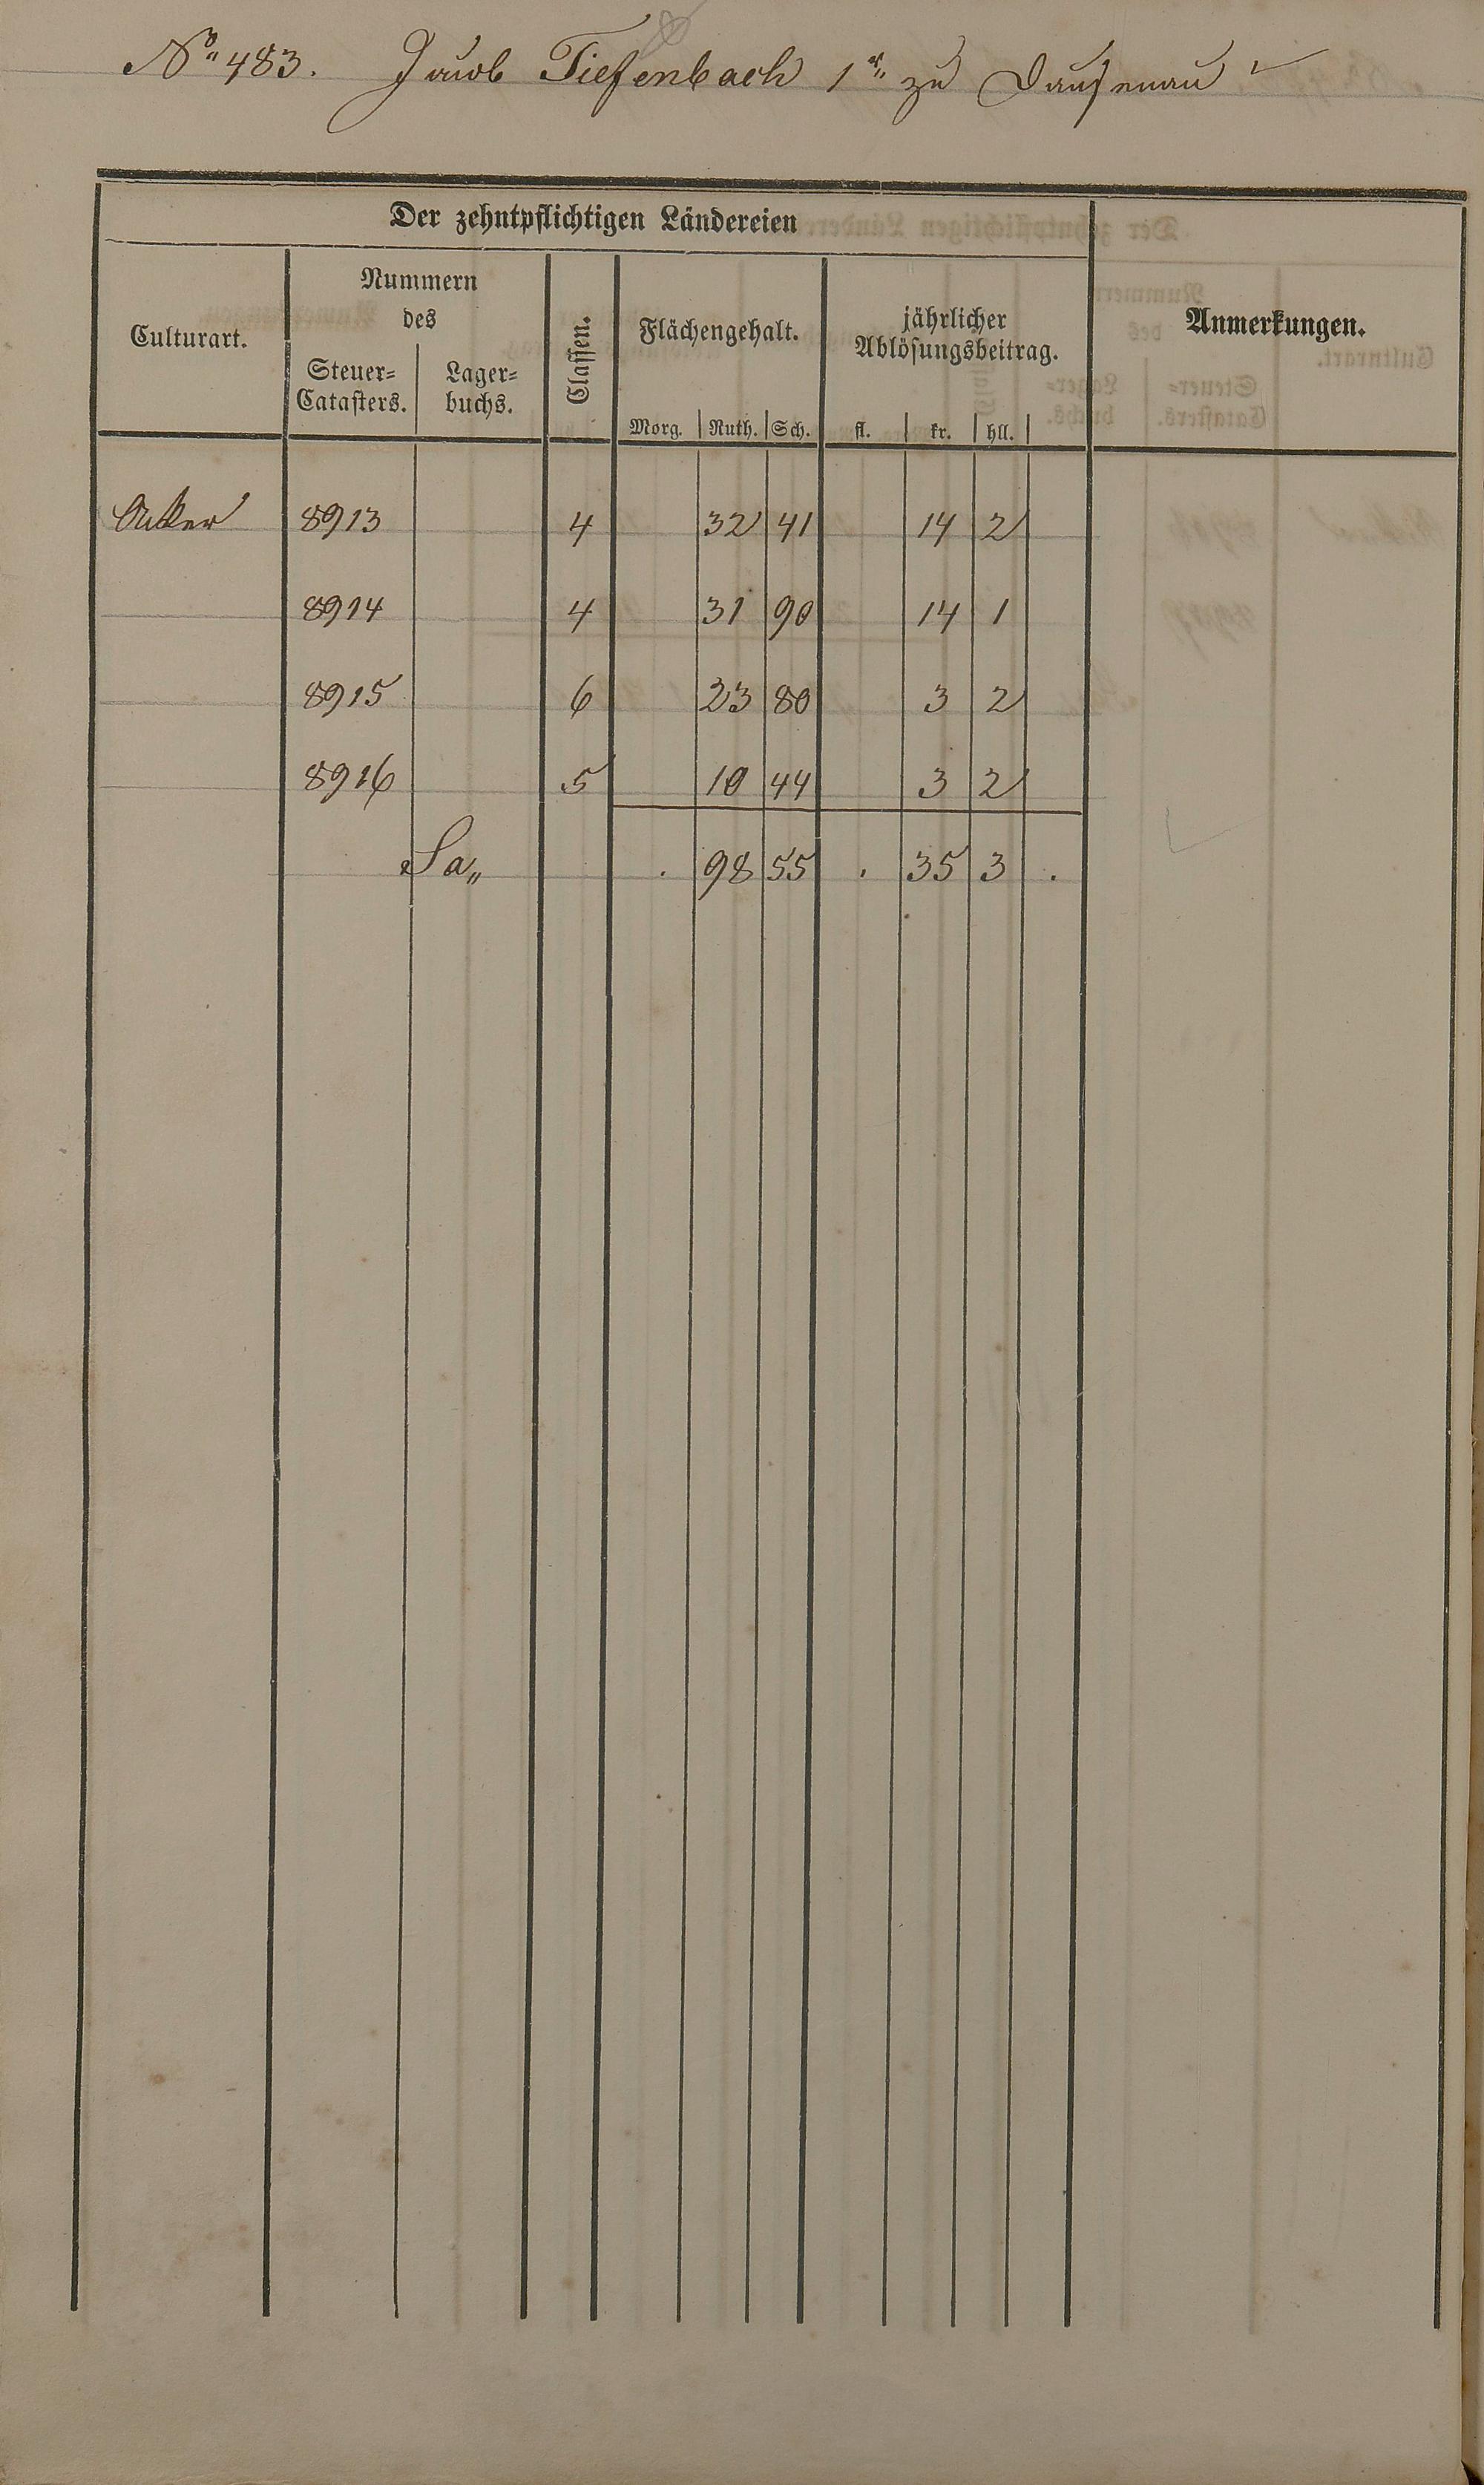 No 483. Jacob Tiefenbach 1r zu Dausenau
Der zehntpflichtigen Ländereien
Culturart.
Nummern
des
Steuer=
Catasters.
Lager=
buchs.
Classen.
Flächengehalt.
Morg. Ruth. Sch.
jährlicher
Ablösungsbeitrag.
fl. kr. hll.
Anmerkungen.
Acker 8913 4 32 41 14 2
8914 4 31 90 14 1
8915 6 23 80 3 2
8916 5 10 44 3 2
Sa„ . 98 55 . 35 3 .